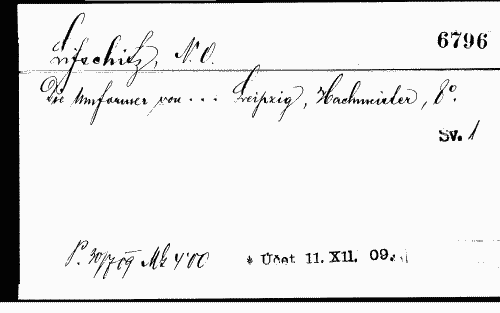 6796
Lifschitz, N. O.
Die Umformer von ... Leipzig, Hachmeister, 8°.
Sv. 1
P. 30/7 09 Mk 4'00 * Účet 11. XII. 09.